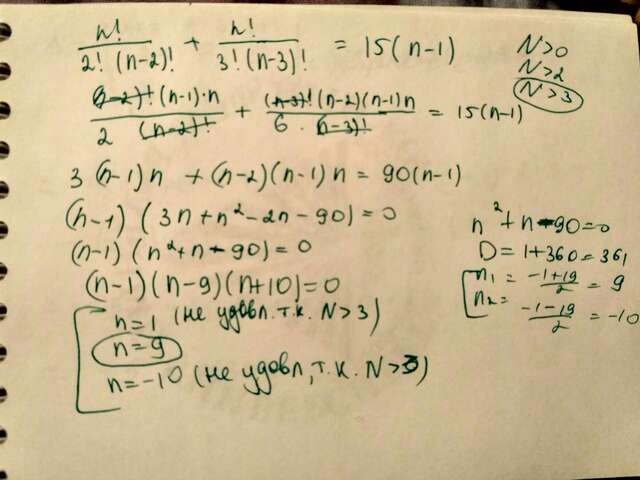 n!/(2!(n-2)!) + n!/(3!(n-3)!) = 15(n-1)
N>0
N>2
N>3
(n-2)!(n-1)·n/(2(n-2)!) + (n-3)!(n-2)(n-1)n/(6·(n-3)!) = 15(n-1)
3(n-1)n + (n-2)(n-1)n = 90(n-1)
(n-1)(3n+n²-2n-90)=0
(n-1)(n²+n-90)=0
(n-1)(n-9)(n+10)=0
n=1 (не удовл. т.к. N>3)
n=9
n=-10 (не удовл, т.к. N>3)
n²+n-90=0
D=1+360=361
n₁ = (-1+19)/2 = 9
n₂ = (-1-19)/2 = -10